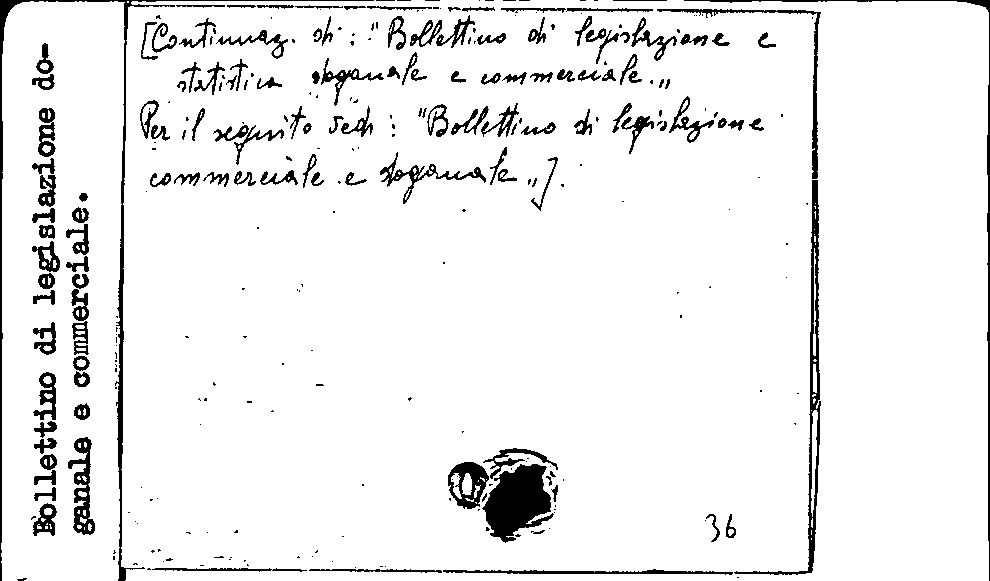 Bollettino di legislazione do-
ganale e commerciale.
[Continuaz. di: "Bollettino di legislazione e
statistica doganale e commerciale.„
Per il seguito vedi: "Bollettino di legislazione
commerciale e doganale„].
36